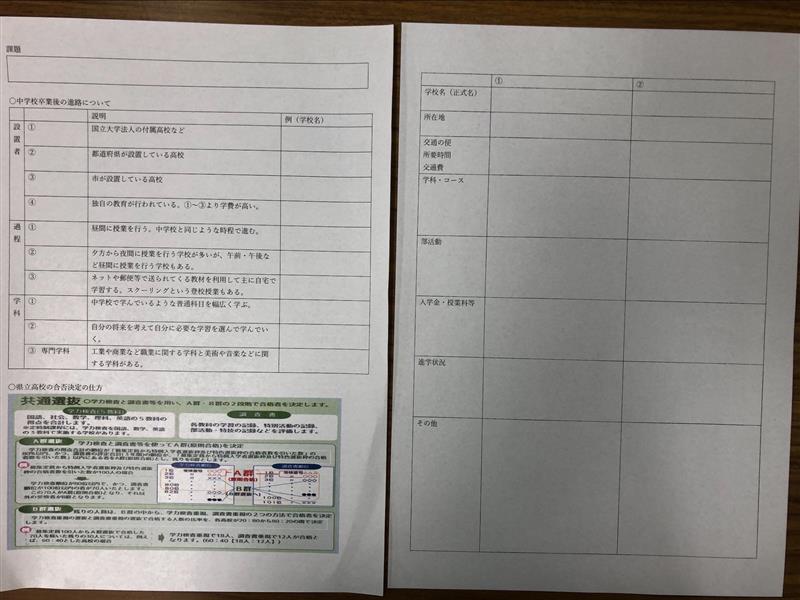 課題
○中学校卒業後の進路について
説明 例（学校名）
設置者
① 国立大学法人の付属高校など
② 都道府県が設置している高校
③ 市が設置している高校
④ 独自の教育が行われている。①～③より学費が高い。
過程
① 昼間に授業を行う。中学校と同じような時程で進む。
② 夕方から夜間に授業を行う学校が多いが、午前・午後な
ど昼間に授業を行う学校もある。
③ ネットや郵便等で送られてくる教材を利用して主に自宅で
学習する。スクーリングという登校授業もある。
学科
① 中学校で学んでいるような普通科目を幅広く学ぶ。
② 自分の将来を考えて自分に必要な学習を選んで学んでい
く。
③ 専門学科 工業や商業など職業に関する学科と美術や音楽などに関
する学科がある。
○県立高校の合否決定の仕方
共通選抜 ○学力検査と調査書等を用い、A群・B群の2段階で合格者を決定します。
学力検査(5教科)
国語、社会、数学、理科、英語の5教科の
得点を合計します。
調査書
各教科の学習の記録、特別活動の記録、
部活動・特技の記録などを評価します。
A群選抜 学力検査と調査書等を使ってA群(原則合格)を決定
学力検査順位
調査書順位
A群
(原則合格)
B群
(B群選抜へ)
B群選抜 残りの人員は、B群の中から、学力検査重視、調査書重視の2つの方法で合格者を決定
します。
例 募集定員100人からA群選抜で合格した
70人を除いた残りの30人については、例え
ば、60：40とした高校の場合
学力検査重視で18人、調査書重視で12人が合格と
なります。(60：40【18人：12人】)
① ②
学校名（正式名）
所在地
交通の便
所要時間
交通費
学科・コース
部活動
入学金・授業料等
進学状況
その他